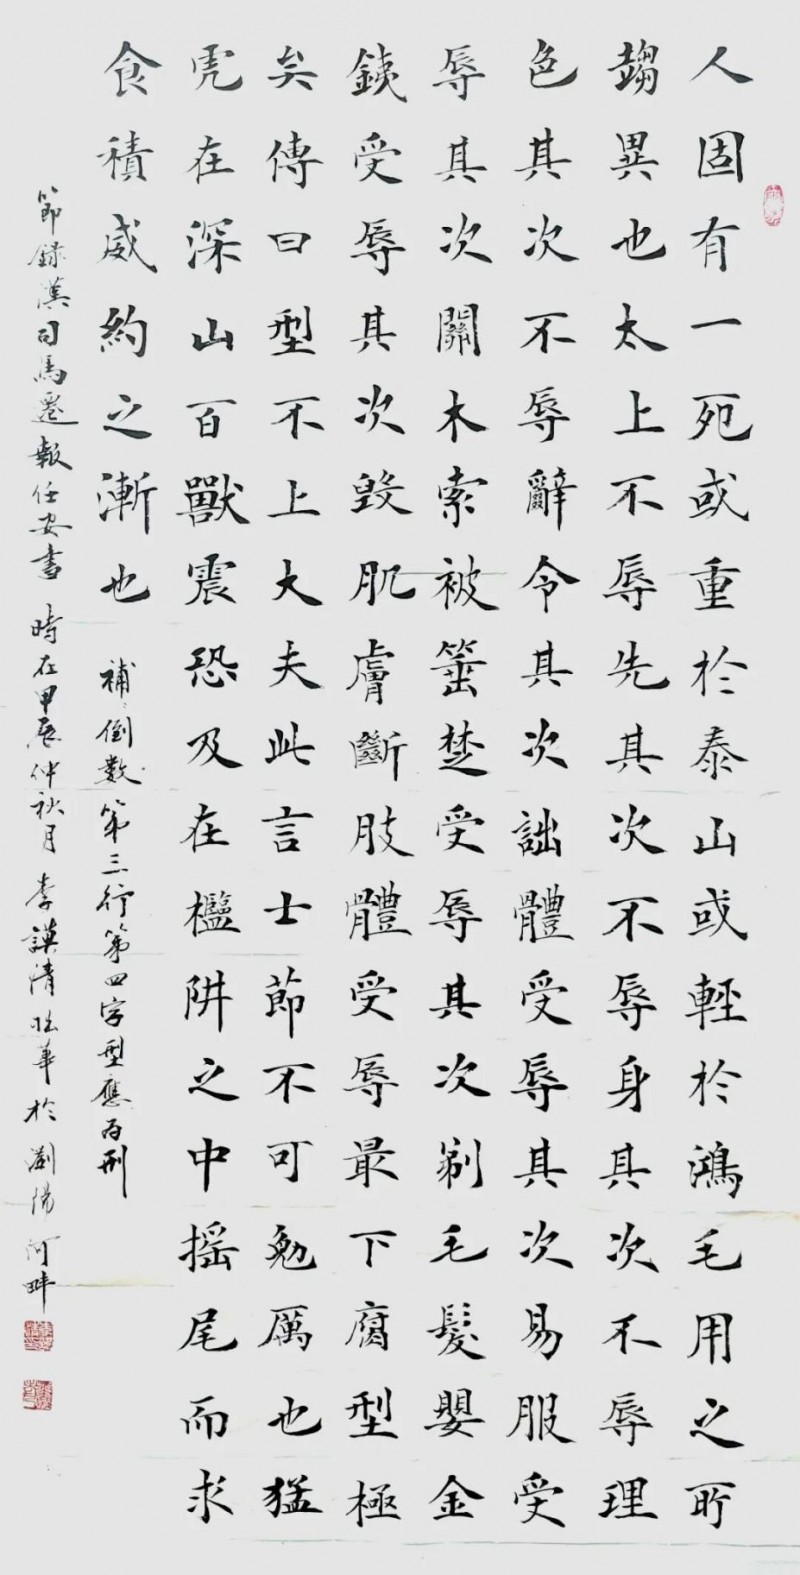 人固有一死或重於泰山或輕於鴻毛用之所
趨異也太上不辱先其次不辱身其次不辱理
色其次不辱辭令其次詘體受辱其次易服受
辱其次關木索被箠楚受辱其次剃毛髮嬰金
銕受辱其次毀肌膚斷肢體受辱最下腐型極
矣傳曰型不上大夫此言士節不可勉厲也猛
虎在深山百獸震恐及在檻阱之中搖尾而求
食積威約之漸也
補倒數第三行第四字型應为刑
節録漢司馬遷報任安書 時在甲辰仲秋月 李謨清華於瀏陽河畔